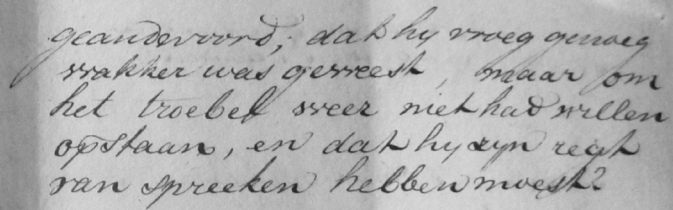 geandwoord; dat hy vroeg genoeg
wakker was geweest, maar om
het troebel weer niet had willen
opstaan, en dat hy zyn regt
van spreeken hebben moest?